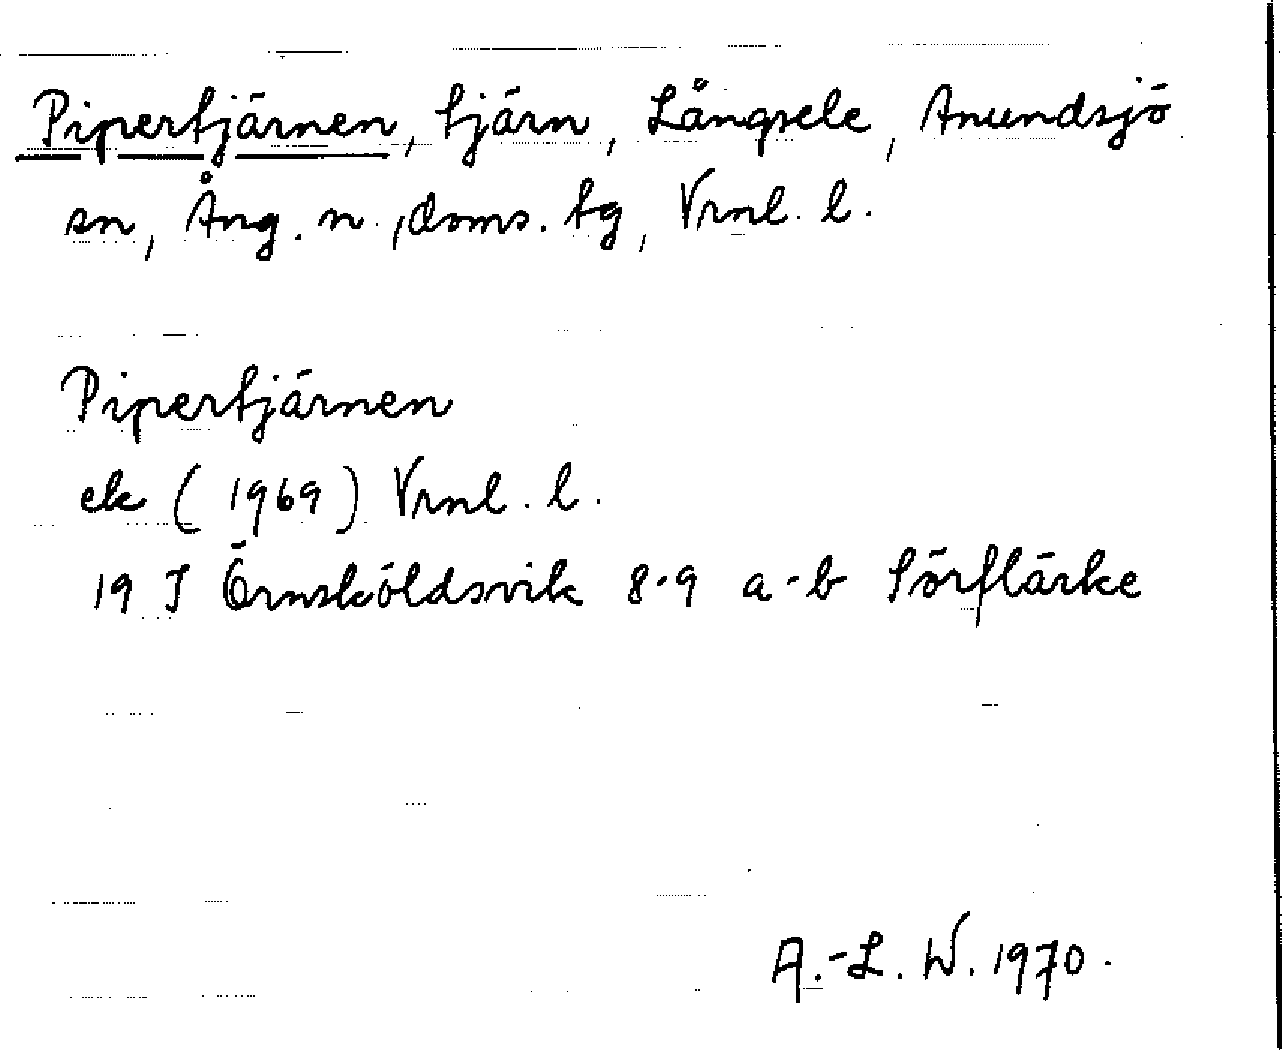 Pipertjärnen, tjärn, Långsele, Anundsjö
sn, Ång. n., doms. tg, Vrnl. l.
Pipertjärnen
ek (1969) Vrnl. l.
19 J Örnsköldsvik 8-9 a-b Sörflärke
A.-L. W. 1970.